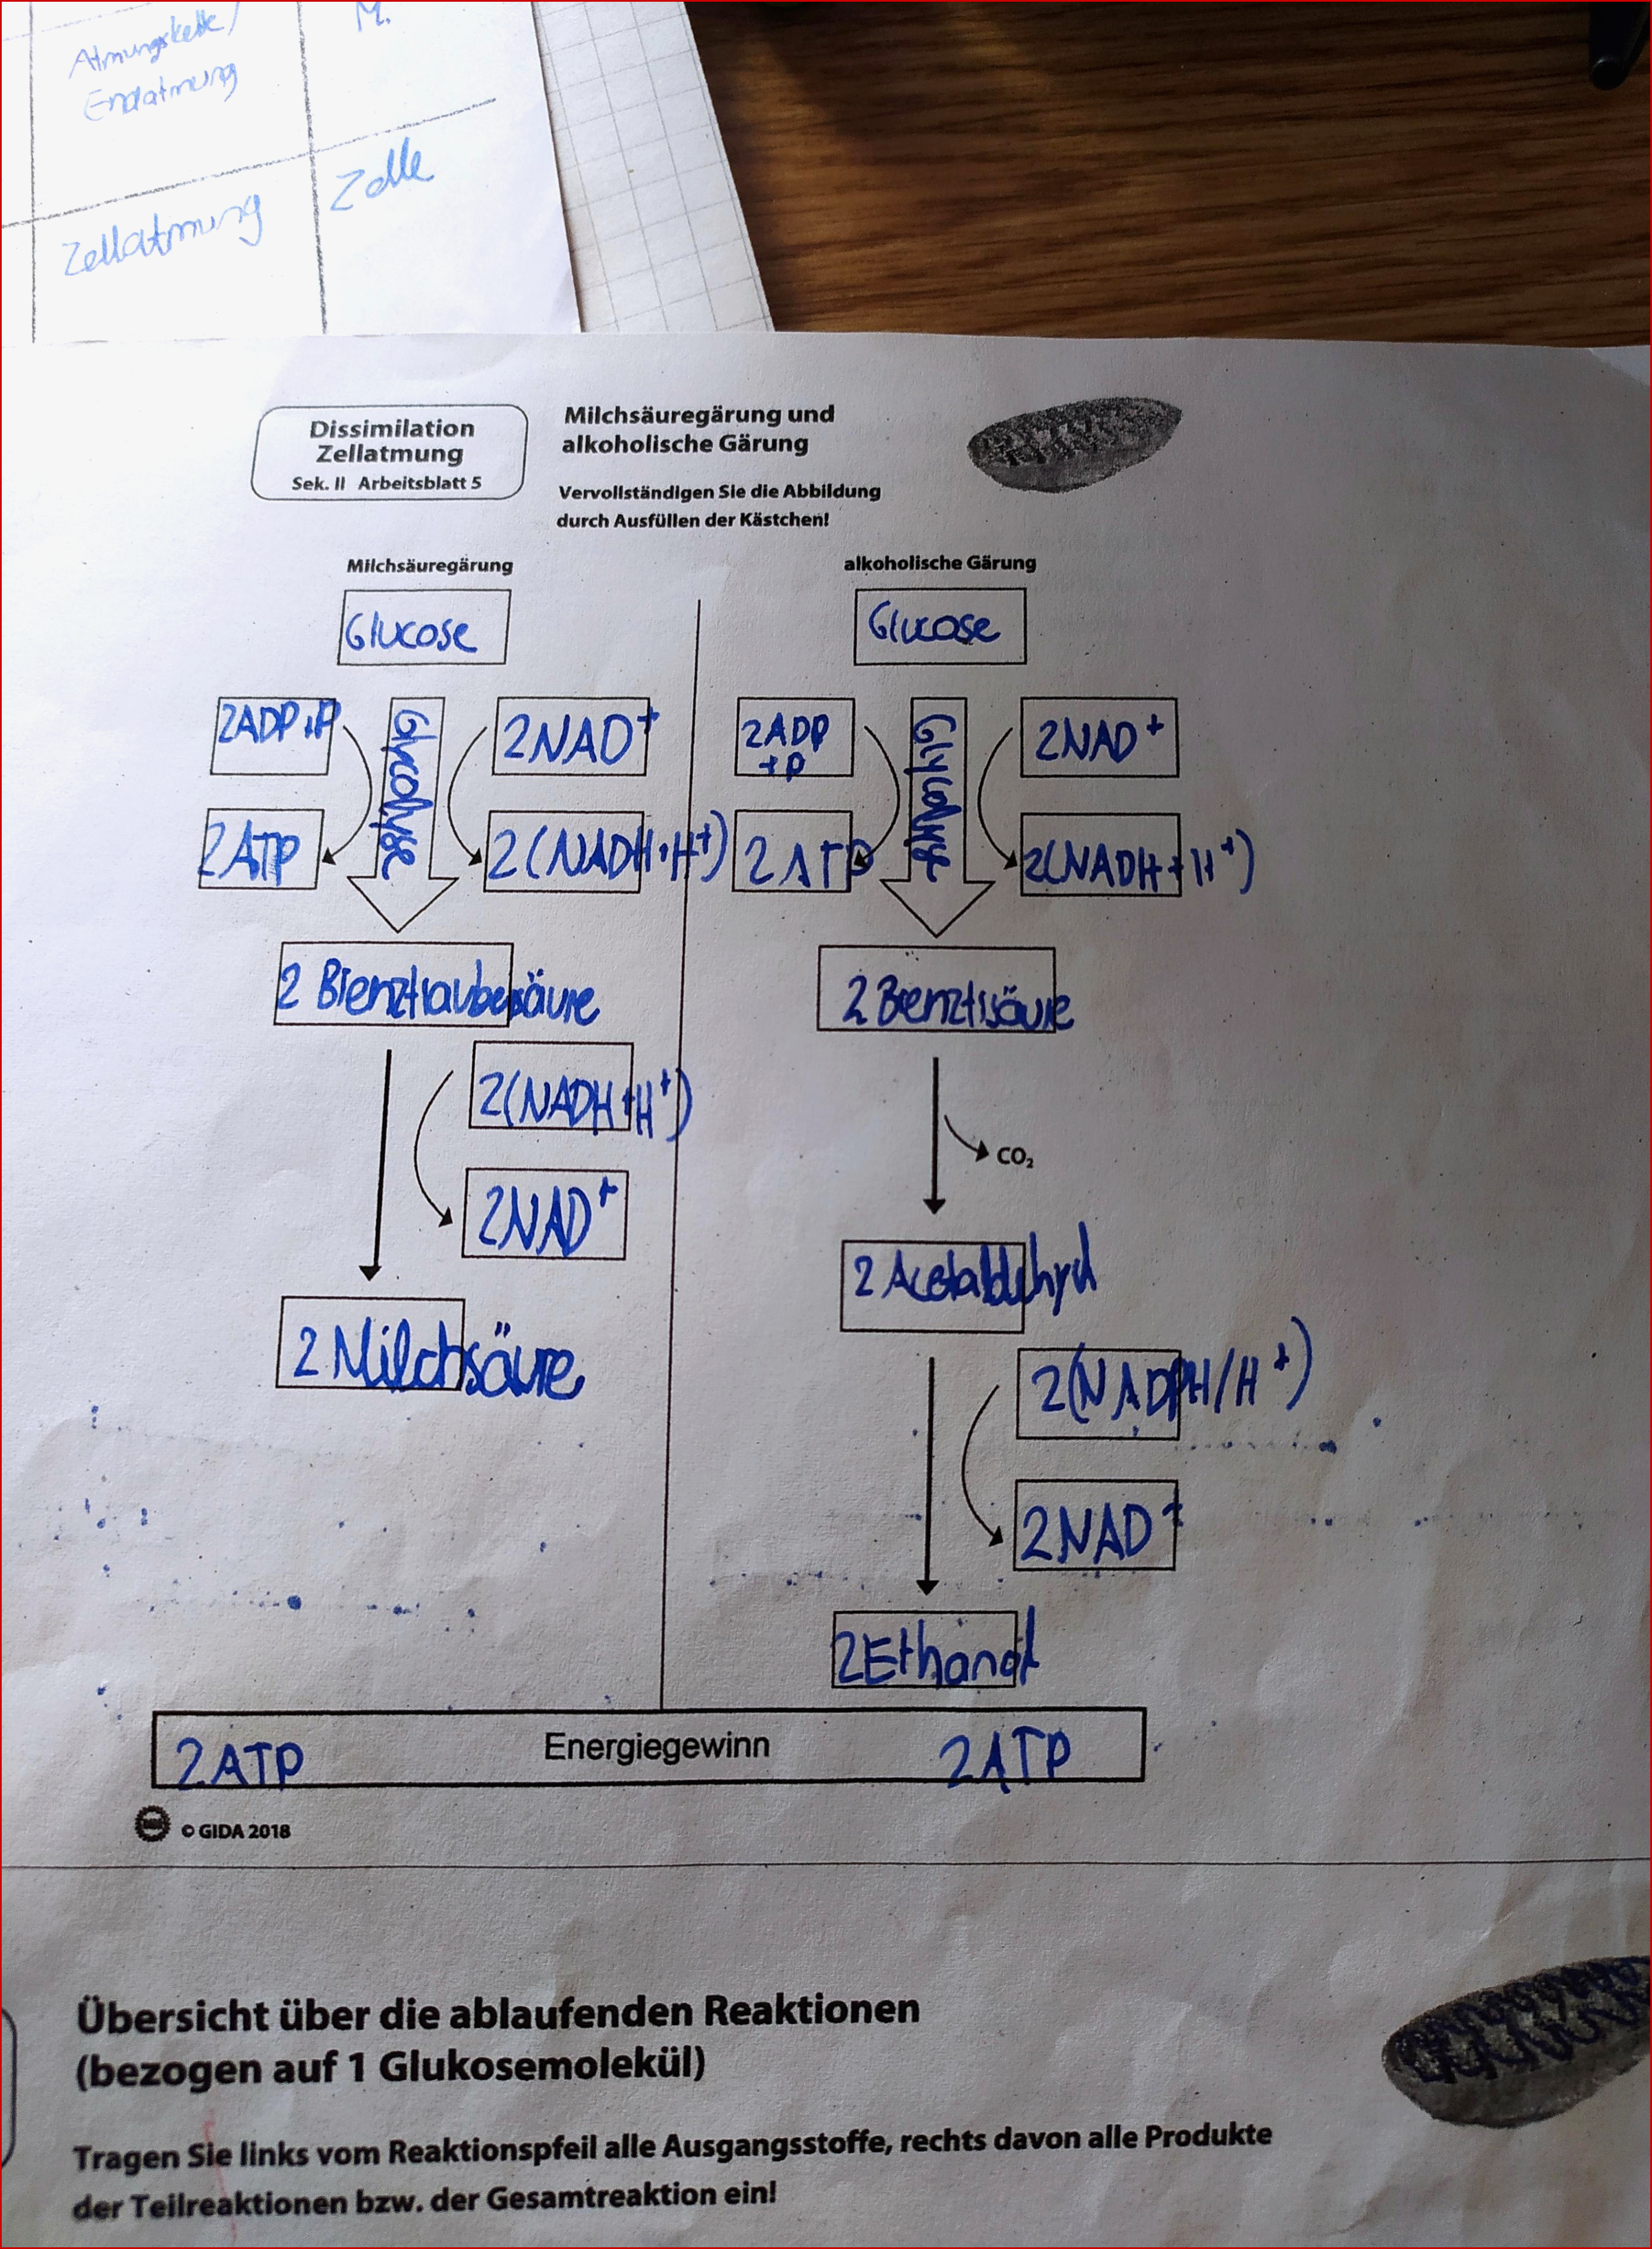 Atmungskette/
Endatmung
M.
Zellatmung
Zelle
Dissimilation
Zellatmung
Sek. II Arbeitsblatt 5
Milchsäuregärung und
alkoholische Gärung
Vervollständigen Sie die Abbildung
durch Ausfüllen der Kästchen!
Milchsäuregärung
Glucose
2ADP+P
Glycolyse
2NAD+
2ATP
2(NADH+H+)
2 Brenztraubesäure
2(NADH+H+)
2NAD+
2 Milchsäure
alkoholische Gärung
Glucose
2ADP
+P
Glycolyse
2NAD+
2ATP
2(NADH+H+)
2 Brenztrsäure
CO₂
2 Acetaldehyd
2(NADPH/H+)
2NAD+
2Ethanol
2ATP Energiegewinn 2ATP
© GIDA 2018
Übersicht über die ablaufenden Reaktionen
(bezogen auf 1 Glukosemolekül)
Tragen Sie links vom Reaktionspfeil alle Ausgangsstoffe, rechts davon alle Produkte
der Teilreaktionen bzw. der Gesamtreaktion ein!